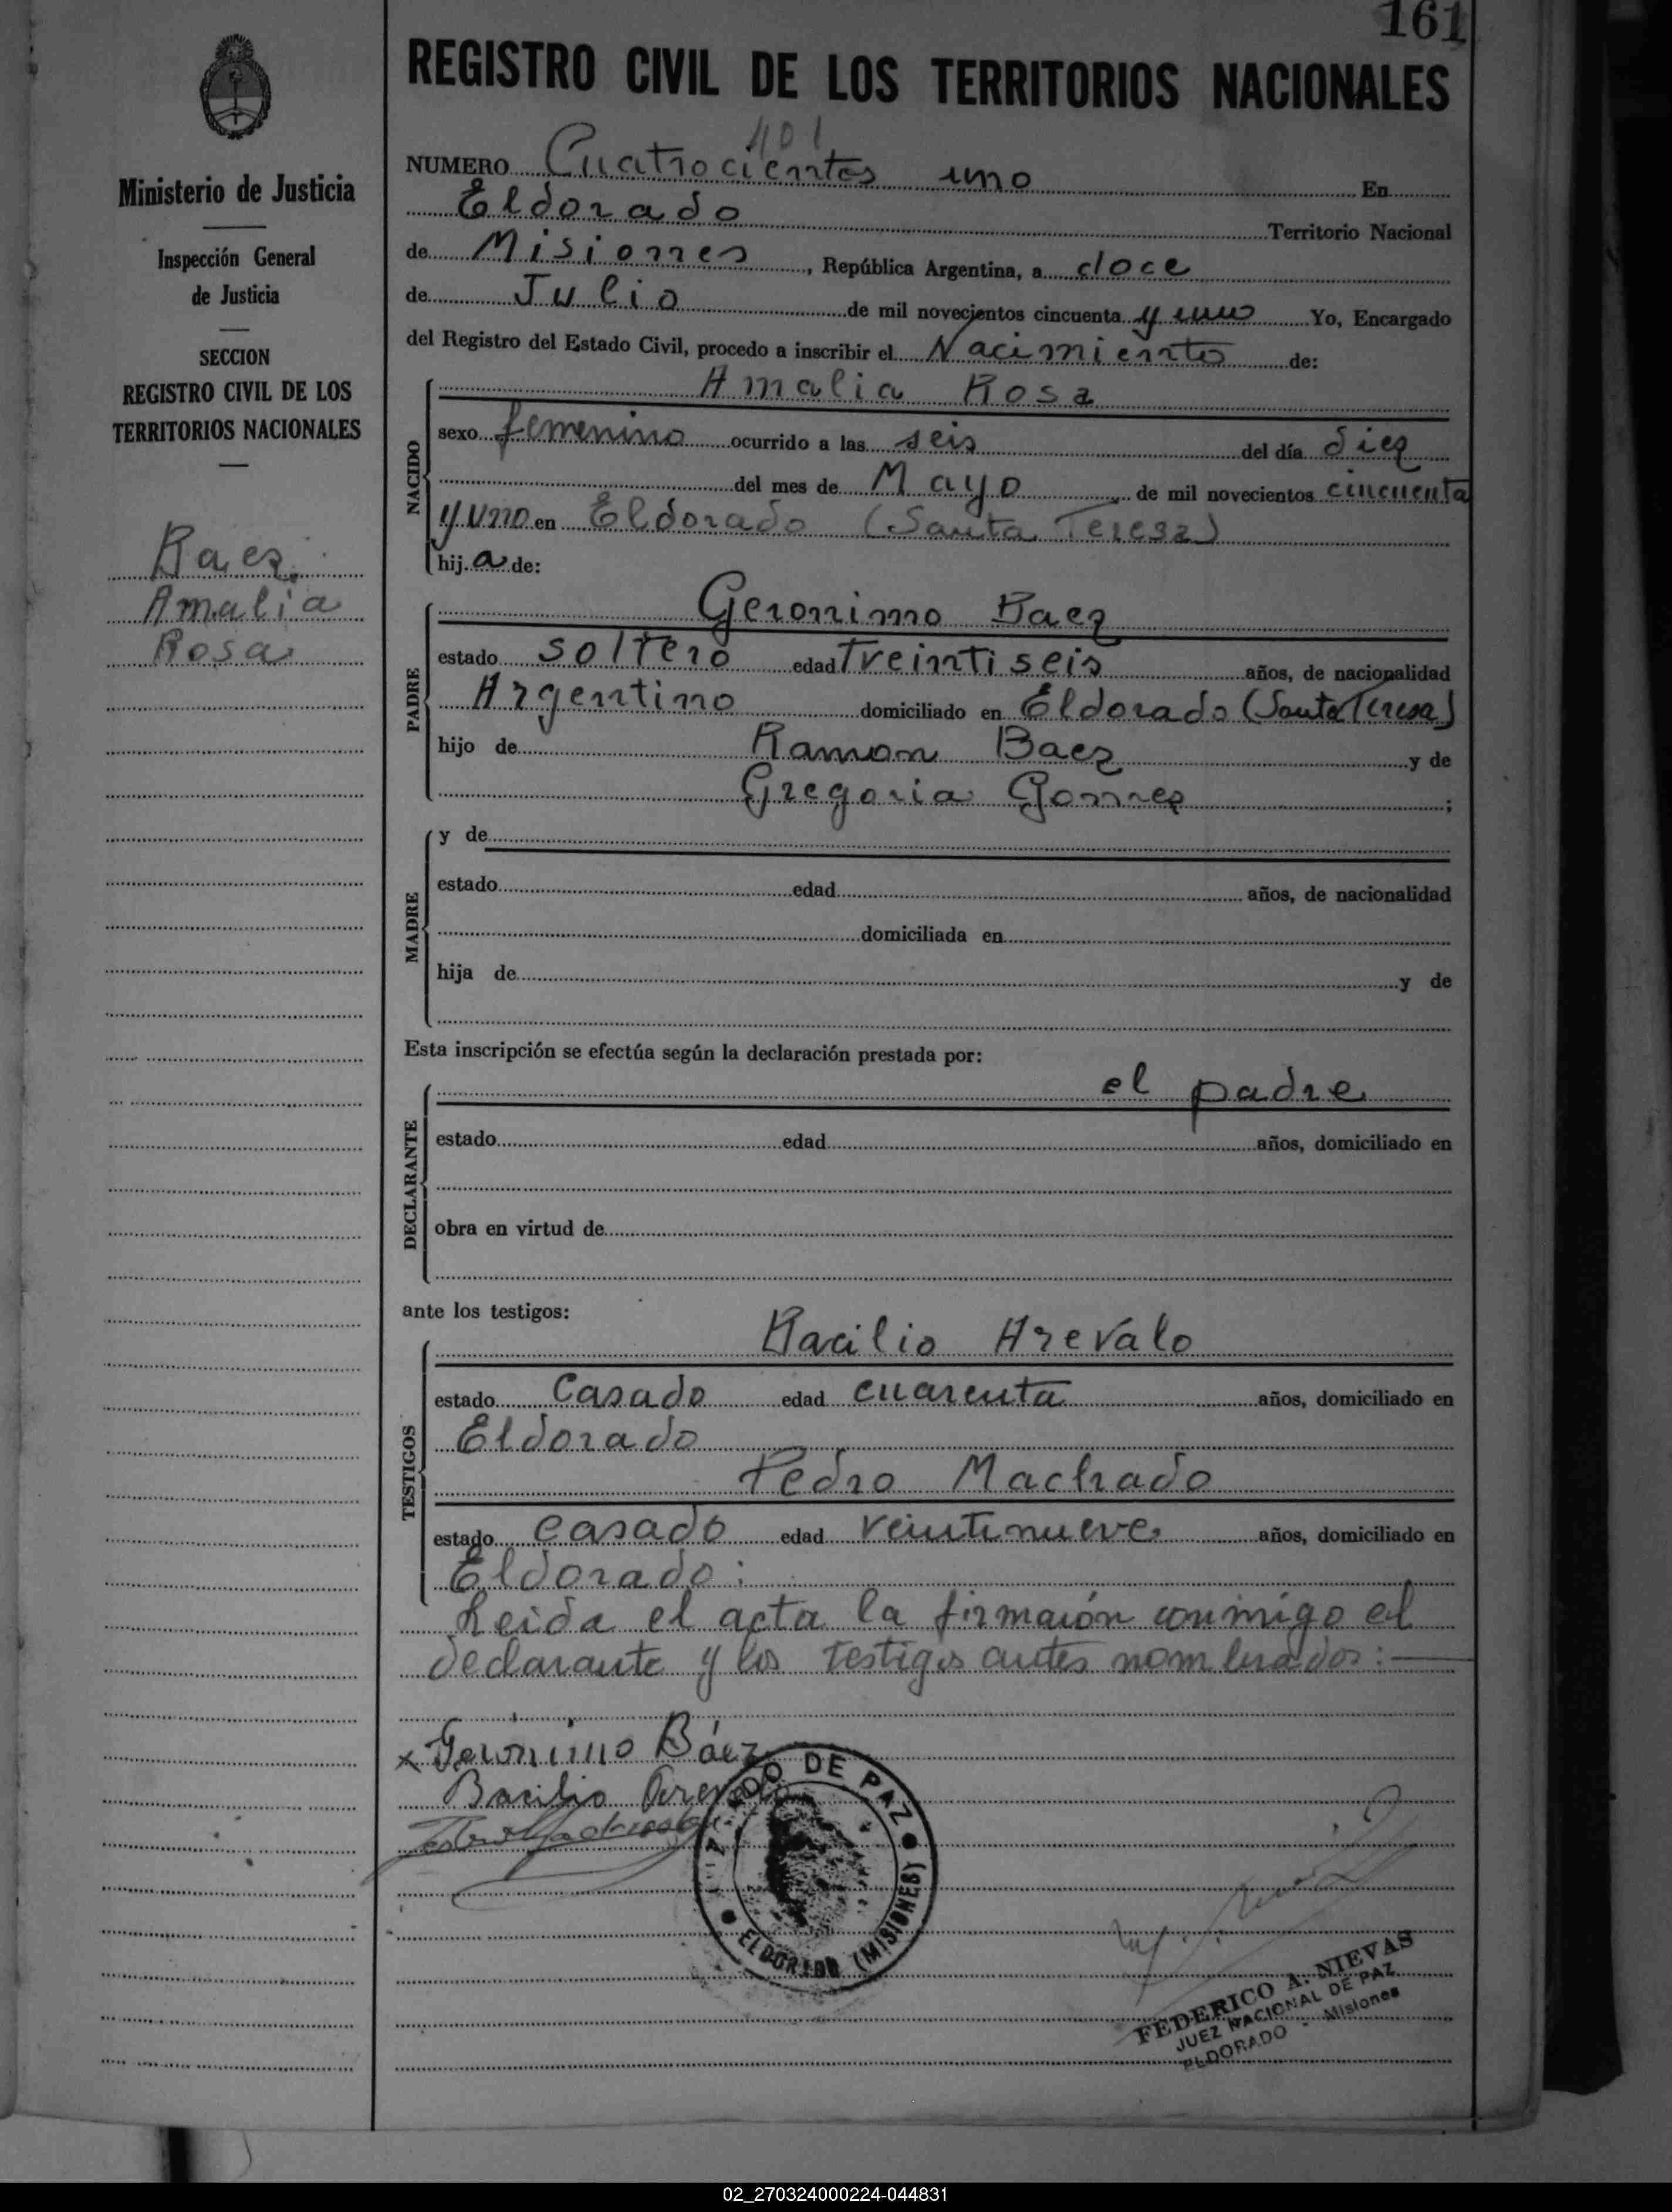 161
REGISTRO CIVIL DE LOS TERRITORIOS NACIONALES
Ministerio de Justicia
Inspección General
de Justicia
SECCION
REGISTRO CIVIL DE LOS
TERRITORIOS NACIONALES
Baez
Amalia
Rosa
401
NUMERO Cuatrocientos uno En
Eldorado Territorio Nacional
de Misiones, República Argentina, a doce
de Julio de mil novecientos cincuenta y uno Yo, Encargado
del Registro del Estado Civil, procedo a inscribir el Nacimiento de:
NACIDO
Amalia Rosa
sexo femenino ocurrido a las seis del día diez
del mes de Mayo de mil novecientos cincuenta
y uno en Eldorado (Santa Teresa)
hij.a de:
PADRE
Geronimo Baez
estado soltero edad treintiseis años, de nacionalidad
Argentino domiciliado en Eldorado (Santa Teresa)
hijo de Ramon Baez y de
Gregoria Gomez ;
MADRE
y de
estado edad años, de nacionalidad
domiciliada en
hija de y de
Esta inscripción se efectúa según la declaración prestada por:
DECLARANTE
el padre
estado edad años, domiciliado en
obra en virtud de
ante los testigos:
TESTIGOS
Bacilio Arevalo
estado Casado edad cuarenta años, domiciliado en
Eldorado
Pedro Machado
estado casado edad veintinueve años, domiciliado en
Eldorado:
Leida el acta la firmaron conmigo el
declarante y los testigos antes nombrados:—
x Gerónimo Báez
Basilio Arevalo
JUZGADO DE PAZ
ELDORADO (MISIONES)
FEDERICO A. NIEVAS
JUEZ NACIONAL DE PAZ
ELDORADO - Misiones
02_270324000224-044831